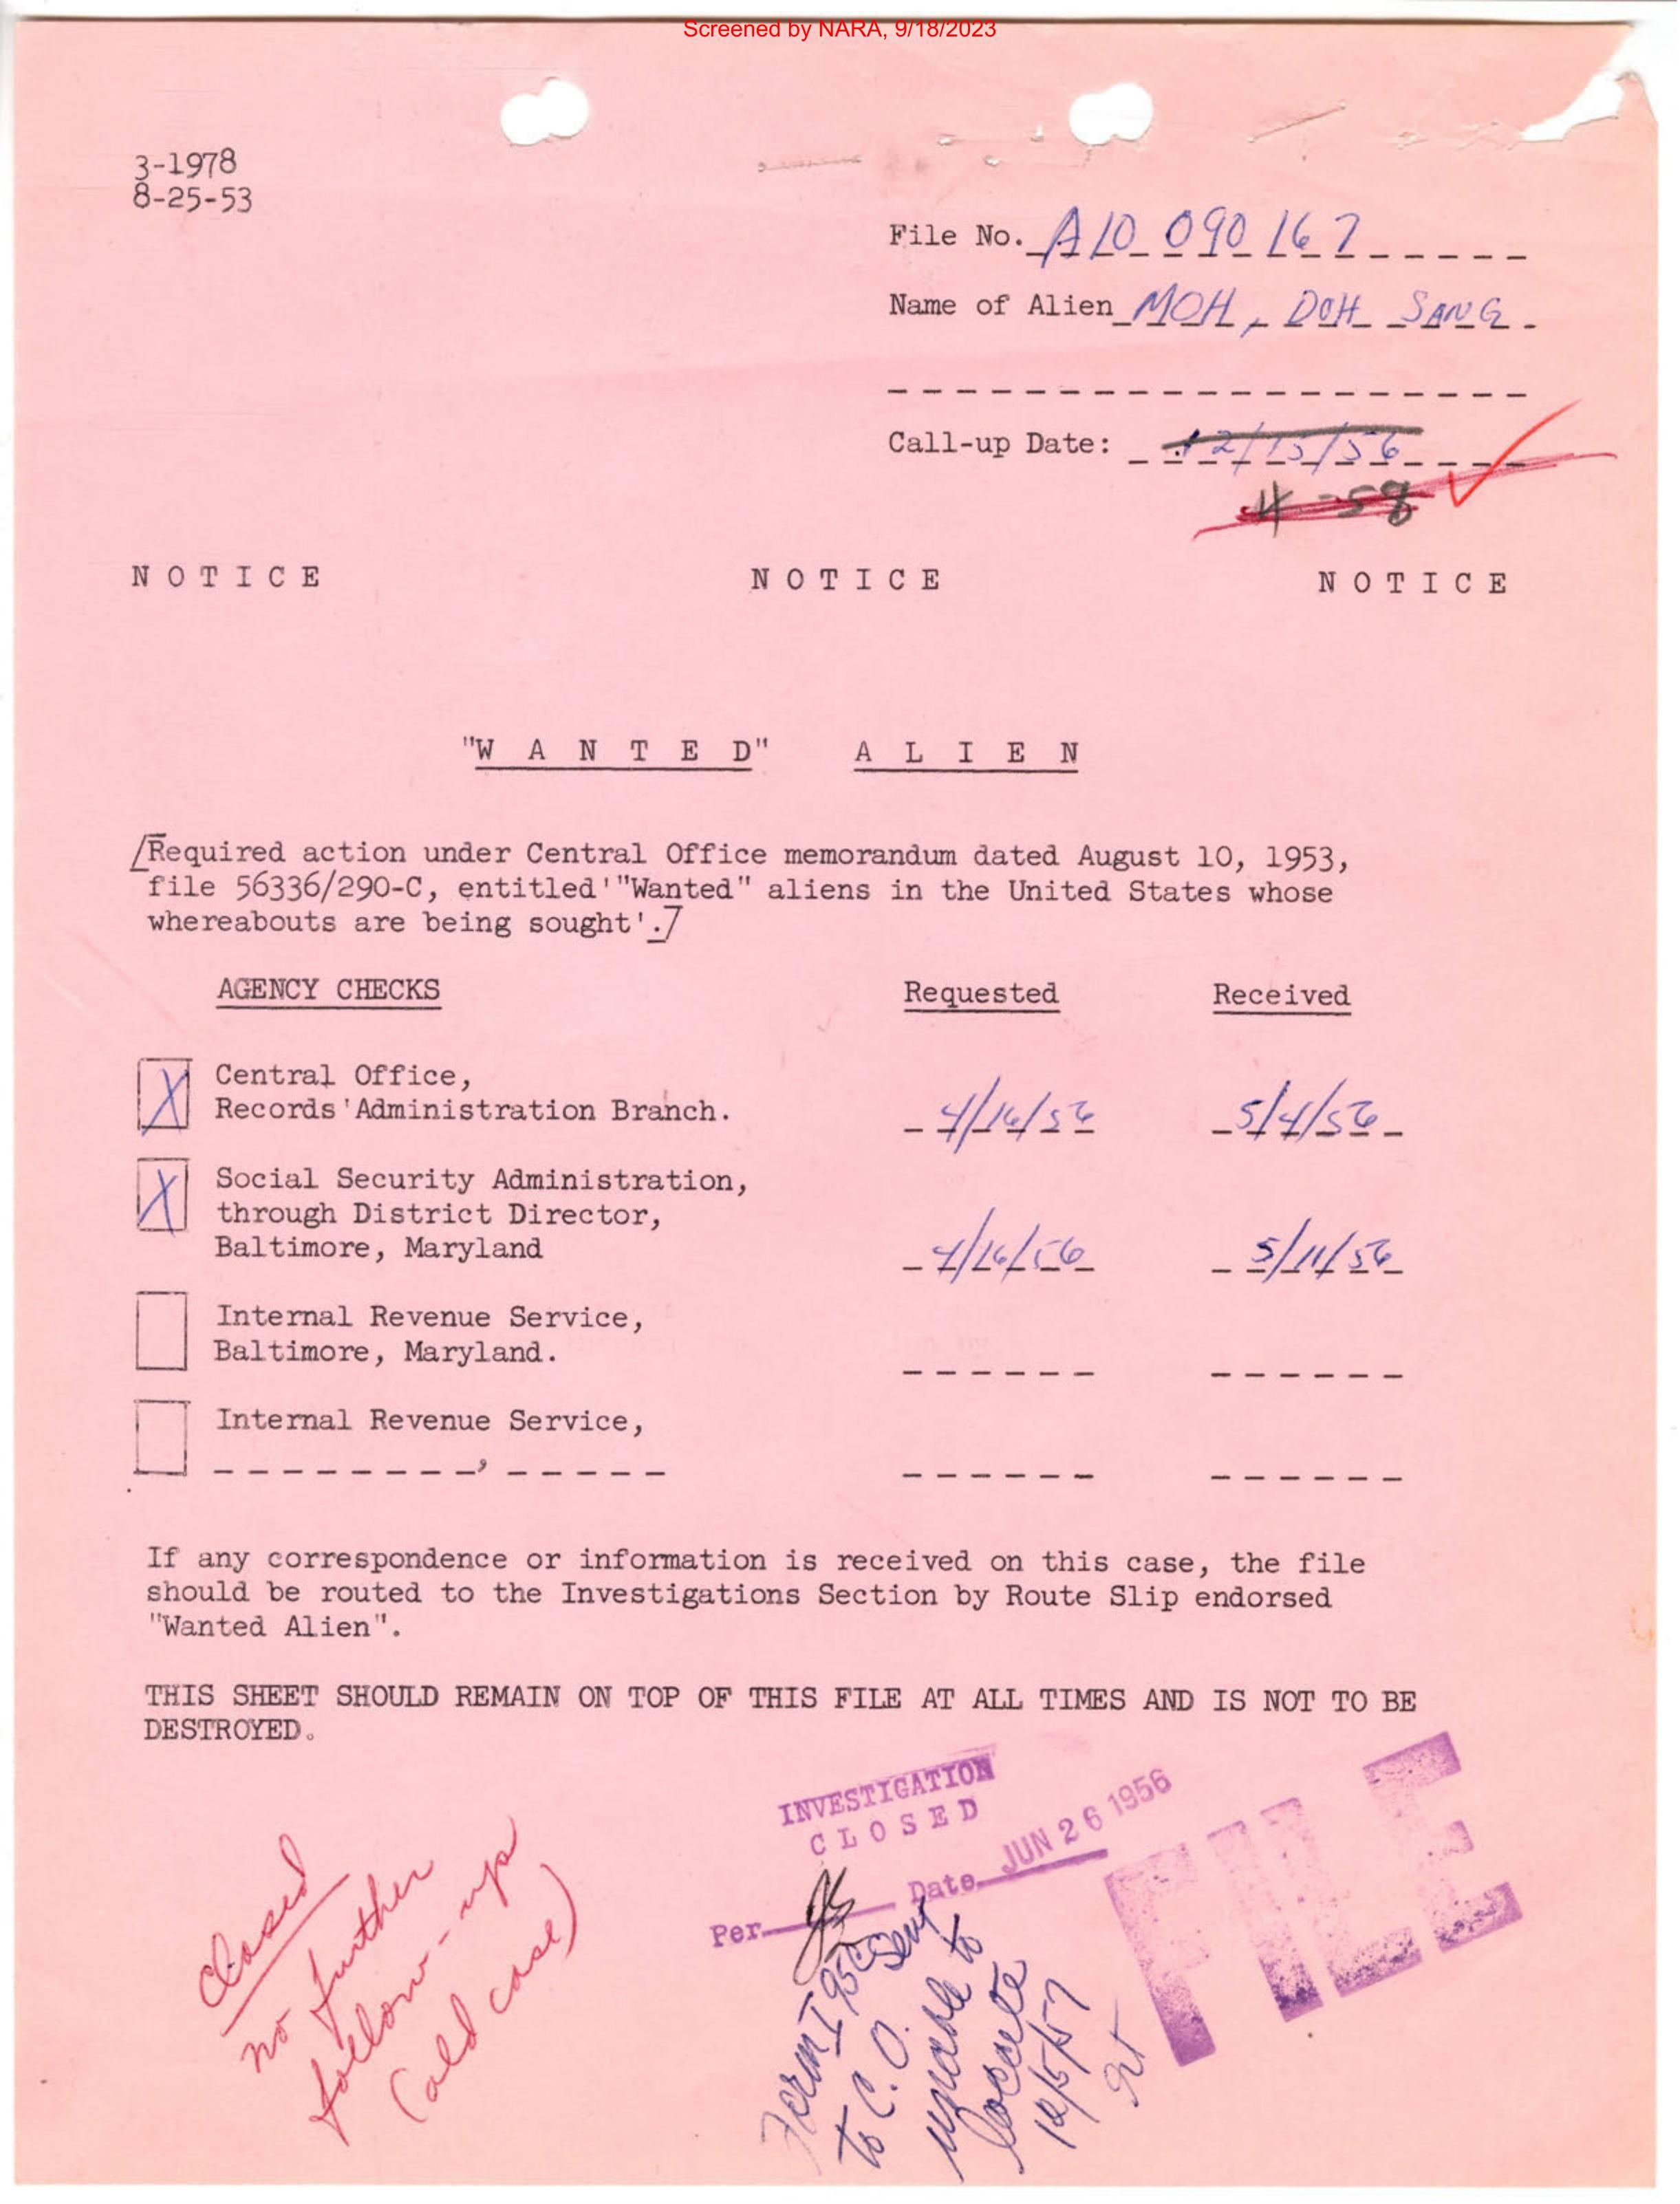 Screened by NARA, 9/18/2023
3-1978
8-25-53
File No. A10 090 167
Name of Alien MOH, DOH SANG
Call-up Date: 12/15/56
4-58
NOTICE NOTICE NOTICE
"WANTED" ALIEN
[Required action under Central Office memorandum dated August 10, 1953,
file 56336/290-C, entitled '"Wanted" aliens in the United States whose
whereabouts are being sought'.]
AGENCY CHECKS Requested Received
X Central Office,
Records Administration Branch. 4/16/56 5/4/56
X Social Security Administration,
through District Director,
Baltimore, Maryland 4/16/56 5/11/56
Internal Revenue Service,
Baltimore, Maryland.
Internal Revenue Service,
,
If any correspondence or information is received on this case, the file
should be routed to the Investigations Section by Route Slip endorsed
"Wanted Alien".
THIS SHEET SHOULD REMAIN ON TOP OF THIS FILE AT ALL TIMES AND IS NOT TO BE
DESTROYED.
INVESTIGATION
CLOSED
Per Date JUN 26 1956
FILE
Closed
no further
follow-up
(old case)
Form I sent
to C.O.
unable to
locate
12/5/57